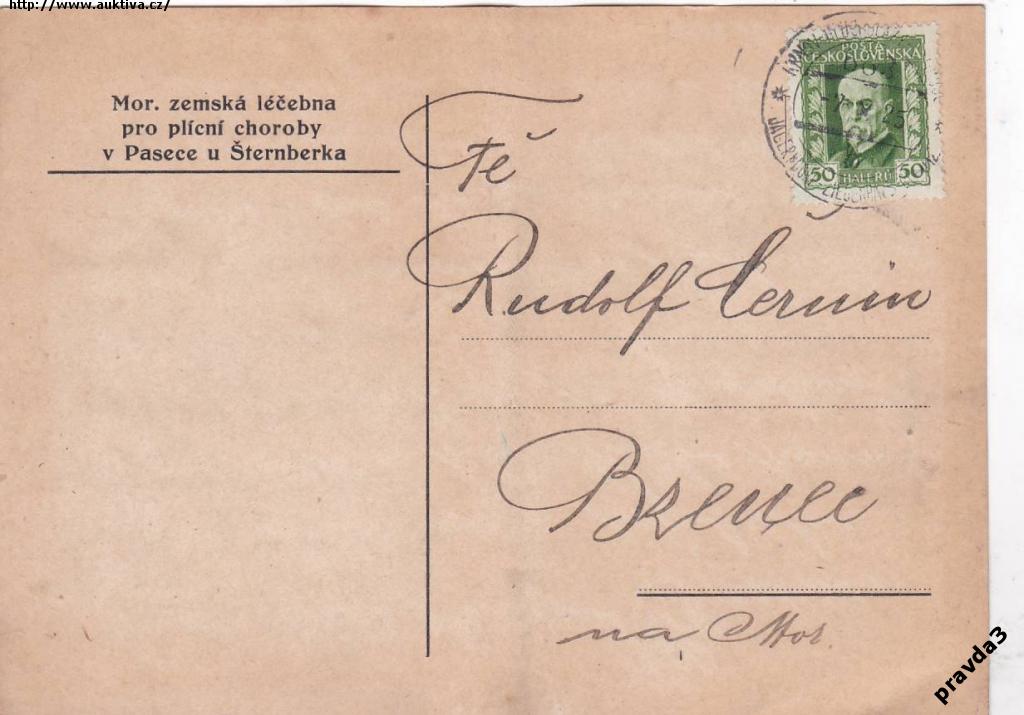 http://www.auktiva.cz/
Mor. zemská léčebna
pro plícní choroby
v Pasece u Šternberka
POŠTA
ČESKOSLOVENSKÁ
25
50 HALÉŘŮ 50
JÄGERNDORF
Rudolf Černín
Bzenec
na Mor.
pravda3